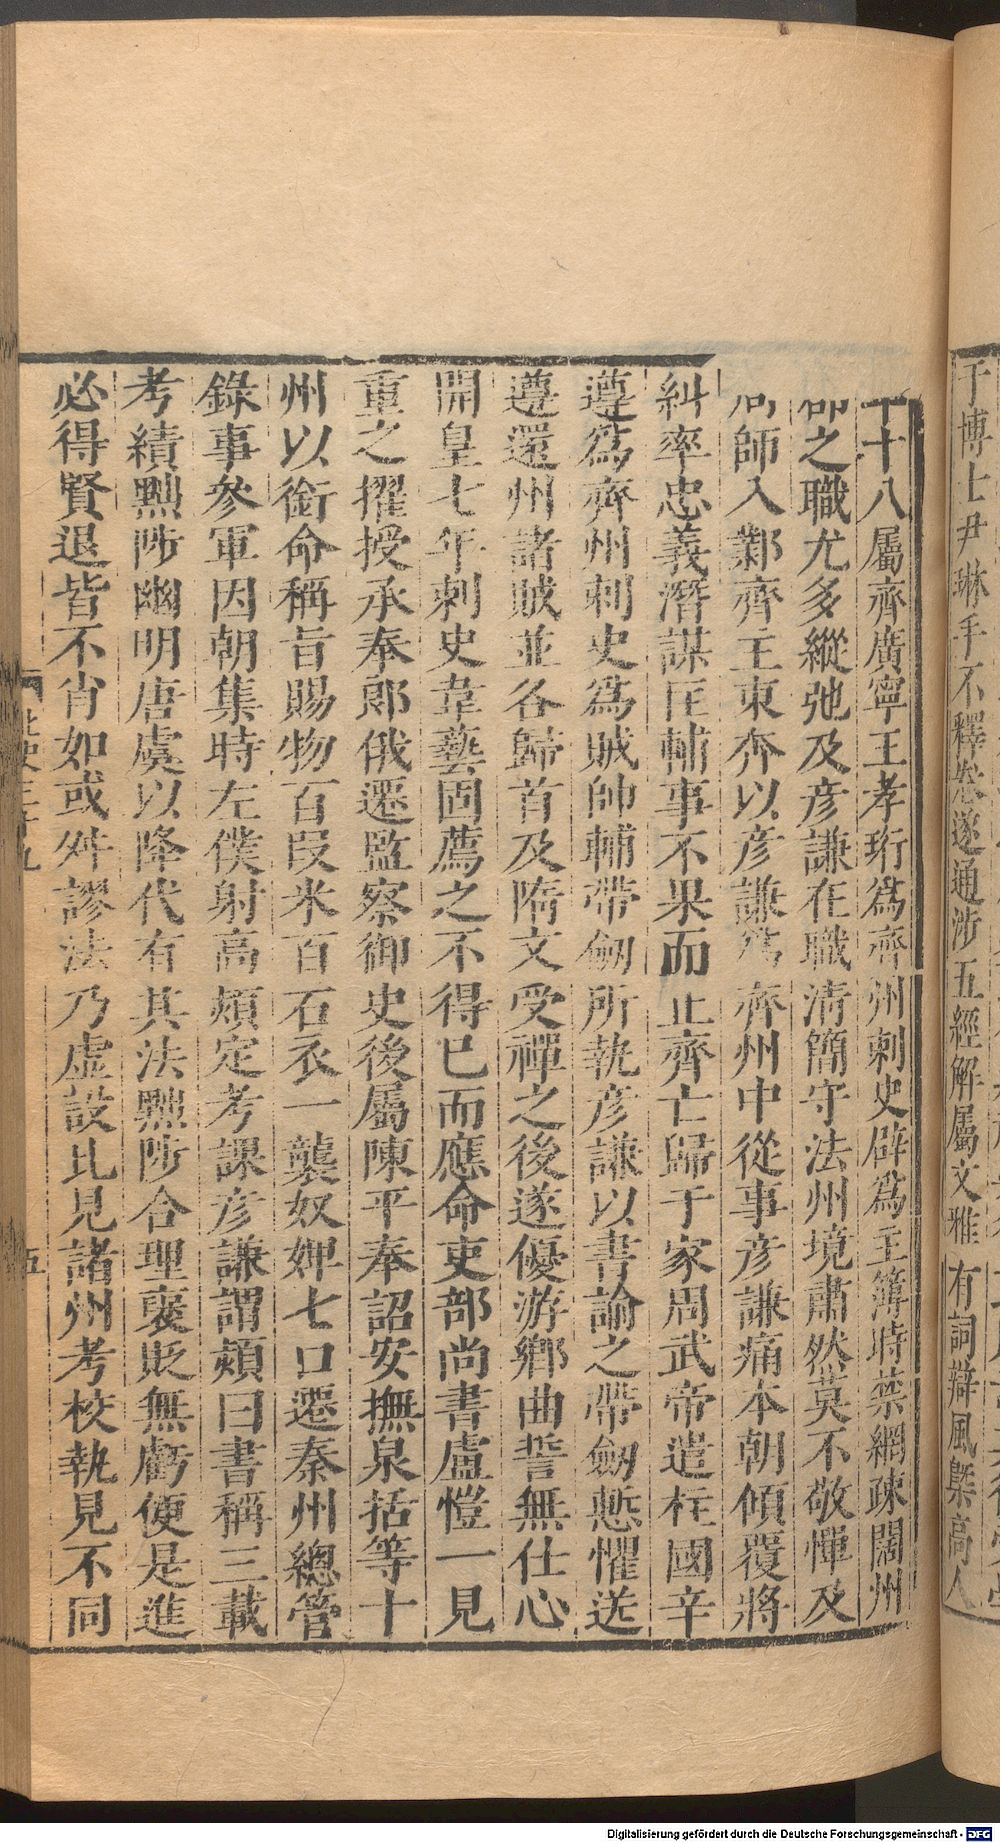 子博士尹琳手不釋卷遂通涉五經解屬文雅有詞辯風槩高人
十八屬齊廣寧王孝珩爲齊州刺史辟爲主簿時禁網疎闊州
之職尤多縱弛及彥謙在職清簡守法州境肅然莫不敬憚及
師入鄴齊王東奔以彥謙爲齊州中從事彥謙痛本朝傾覆將
糾率忠義潛謀匡輔事不果而止齊亡歸于家周武帝遣柱國辛
遵爲齊州刺史爲賊帥輔帶劒所執彥謙以書諭之帶劒慙懼送
遵還州諸賊並各歸首及隋文受禪之後遂優游鄉曲誓無仕心
開皇七年刺史韋藝固薦之不得已而應命吏部尚書盧愷一見
重之擢授承奉郎俄遷監察御史後屬陳平奉詔安撫泉括等十
州以銜命稱旨賜物百段米百石衣一襲奴婢七口遷秦州總管
錄事參軍因朝集時左僕射高熲定考課彥謙謂熲曰書稱三載
考績黜陟幽明唐虞以降代有其法黜陟合理襃貶無虧便是進
必得賢退皆不肖如或舛謬法乃虛設比見諸州考校執見不同
五
Digitalisierung gefördert durch die Deutsche Forschungsgemeinschaft - DFG